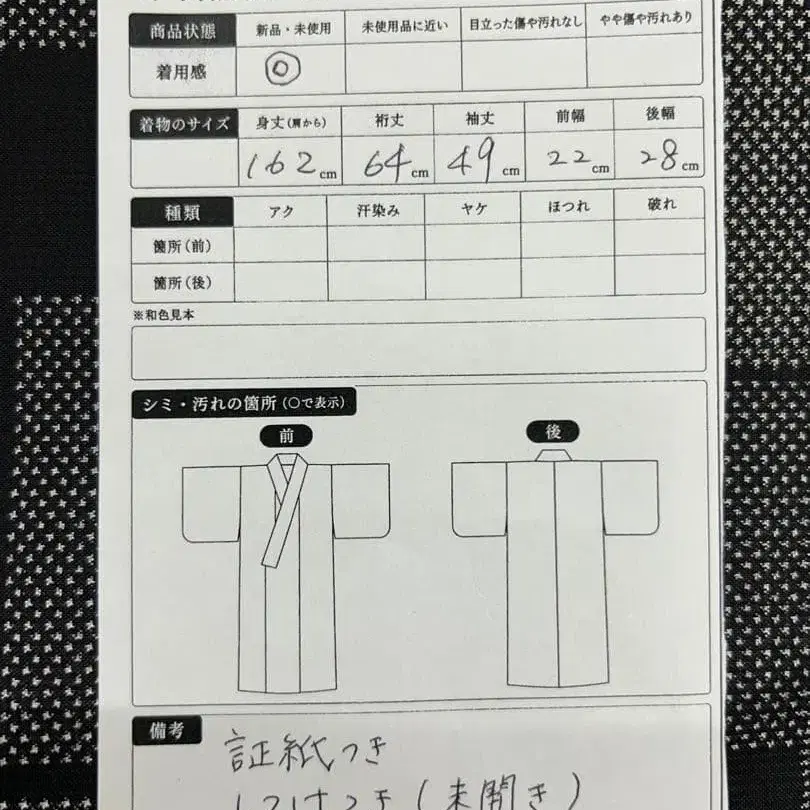 商品状態 新品・未使用 未使用品に近い 目立った傷や汚れなし やや傷や汚れあり
着用感 ◎
着物のサイズ 身丈(肩から) 裄丈 袖丈 前幅 後幅
162cm 64cm 49cm 22cm 28cm
種類 アク 汗染み ヤケ ほつれ 破れ
箇所(前)
箇所(後)
※和色見本
シミ・汚れの箇所(〇で表示)
前 後
備考
証紙つき
しつけつき(未開き)